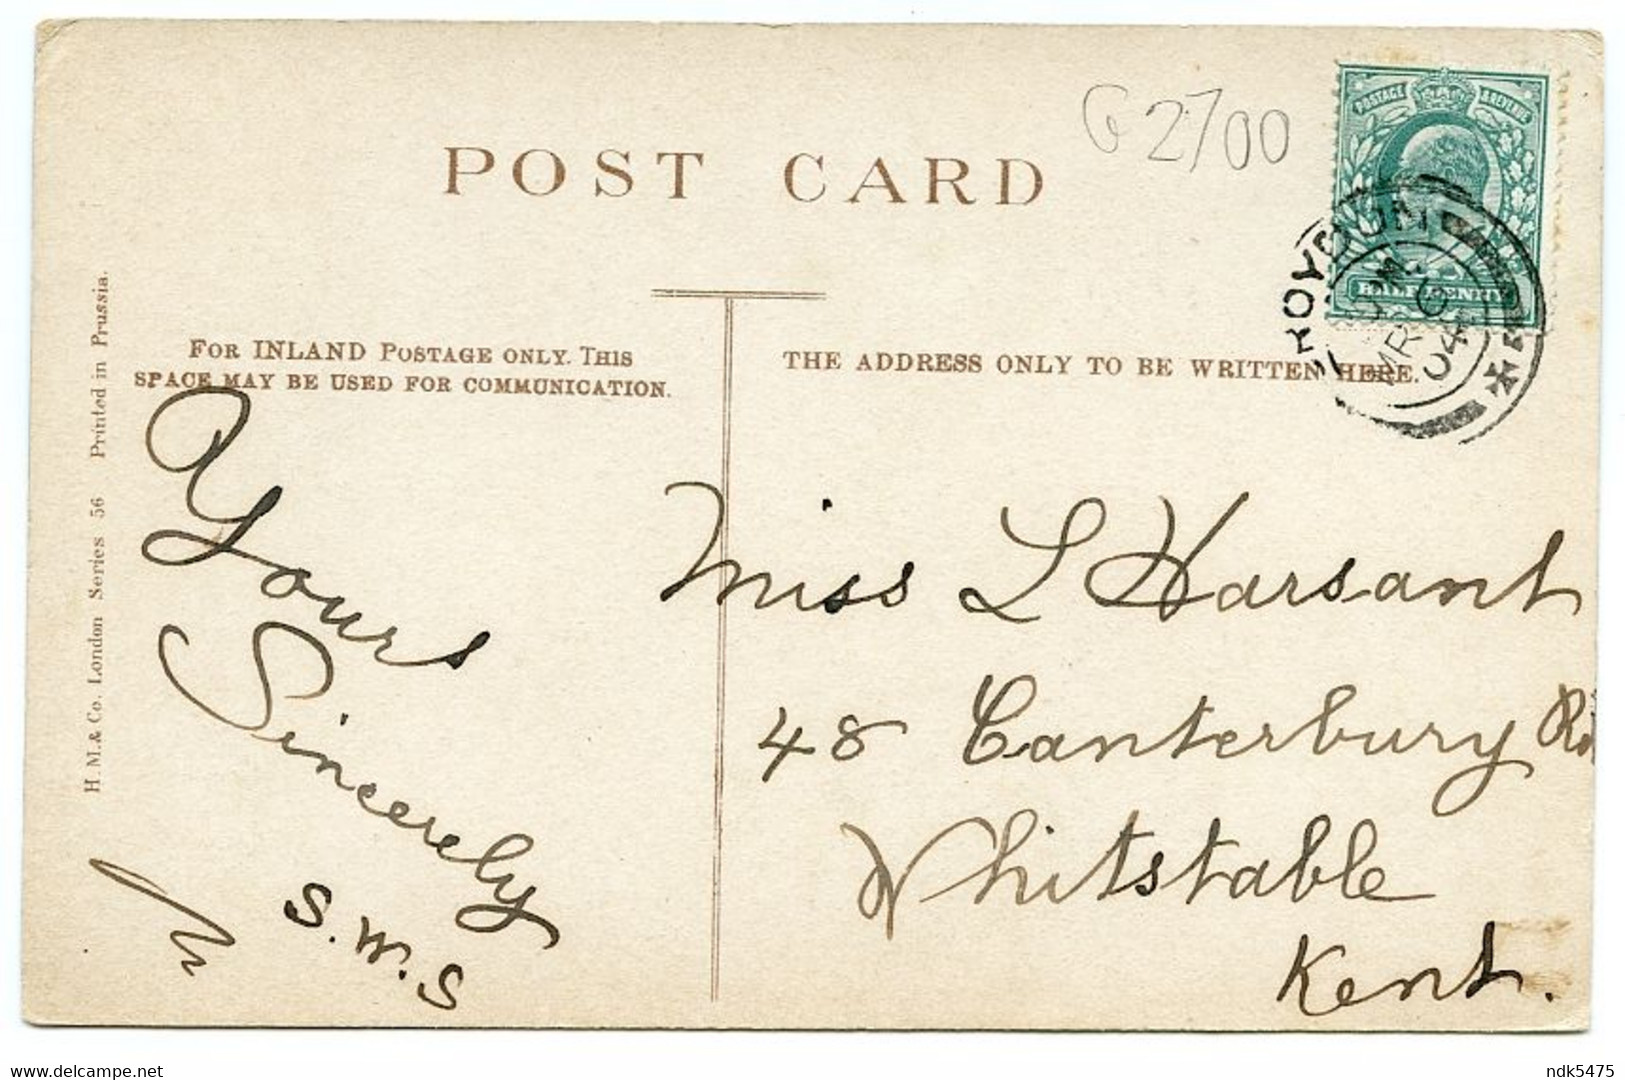 POST CARD
G2700
POSTAGE & REVENUE
HALF PENNY
CROYDON
MR 6
04
FOR INLAND POSTAGE ONLY. THIS
SPACE MAY BE USED FOR COMMUNICATION.
THE ADDRESS ONLY TO BE WRITTEN HERE.
H. M. & Co. London Series 56 Printed in Prussia.
Yours
Sincerely
S. W. S
Miss L Harsant
48 Canterbury Rd
Whitstable
Kent.
www.delcampe.net
ndk5475